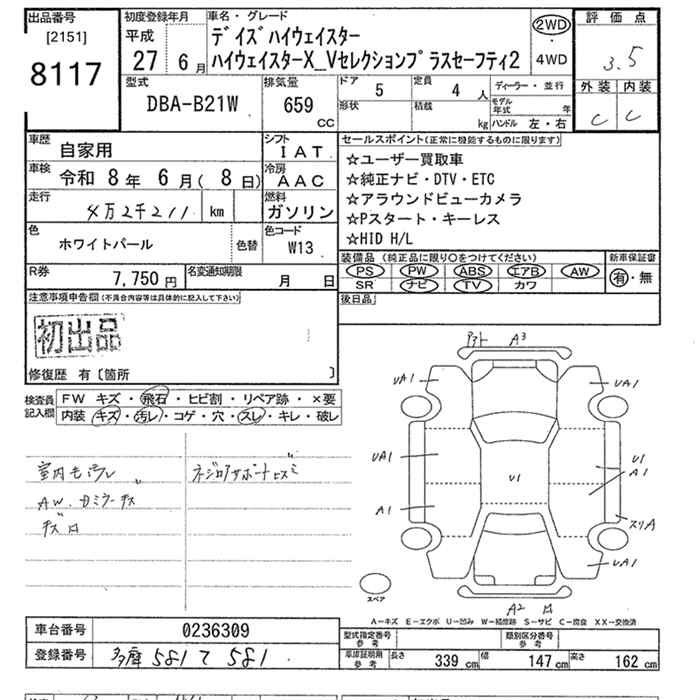 出品番号
[2151]
8117
初度登録年月
平成
27 6月
車名・グレード
デイズハイウェイスター
ハイウェイスターX_Vセレクションプラスセーフティ2
2WD
・
4WD
評価点
3.5
外装 内装
C C
型式
DBA-B21W
排気量
659
cc
ドア 5
定員 4 人
形状
積載 kg
ディーラー・並行
モデル年式 年
ハンドル 左・右
車歴
自家用
シフト
IAT
車検
令和 8年 6月( 8日)
冷房
AAC
走行
4万2千211 km
燃料
ガソリン
色
ホワイトパール
色替
色コード
W13
R券
7,750円
名変通知期限
月 日
セールスポイント(正常に機能するものに限ります)
☆ユーザー買取車
☆純正ナビ・DTV・ETC
☆アラウンドビューカメラ
☆Pスタート・キーレス
☆HID H/L
装備品(純正品に限り○をつけてください)
PS PW ABS エアB AW
SR ナビ TV カワ
新車保証書
有・無
後日品
注意事項申告欄(不具合内容等は具体的に記入して下さい)
初出品
修復歴 有〔箇所 〕
検査員
記入欄
FW キズ・飛石・ヒビ割・リペア跡・×要
内装 キズ・汚レ・コゲ・穴・スレ・キレ・破レ
A3
UA1
UA1
UA1
U1
U1
A1
A1
スリA
UA1
A2
スペア
A-キズ E-エクボ U-凹み W-補修跡 S-サビ C-腐食 XX-交換済
車台番号
0236309
登録番号
多摩 581 て 581
型式指定番号
参考
類別区分番号
参考
車庫証明用
参考
長さ 339 cm
幅 147 cm
高さ 162 cm